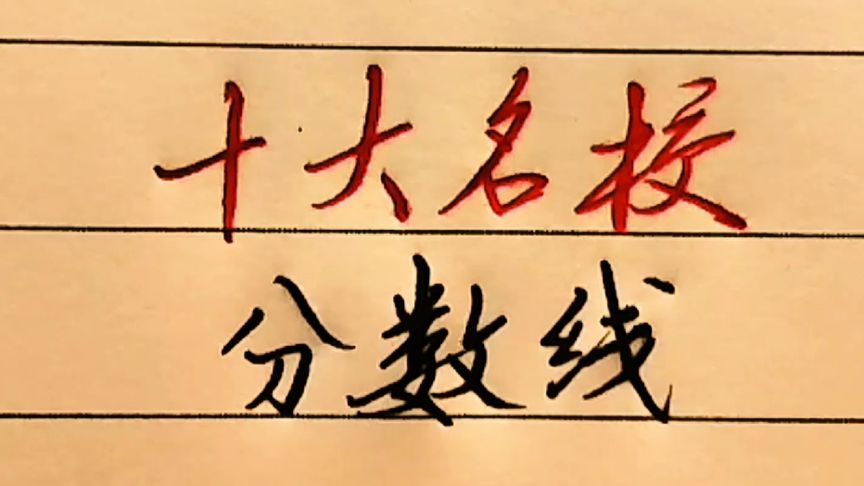 十大名校
分数线